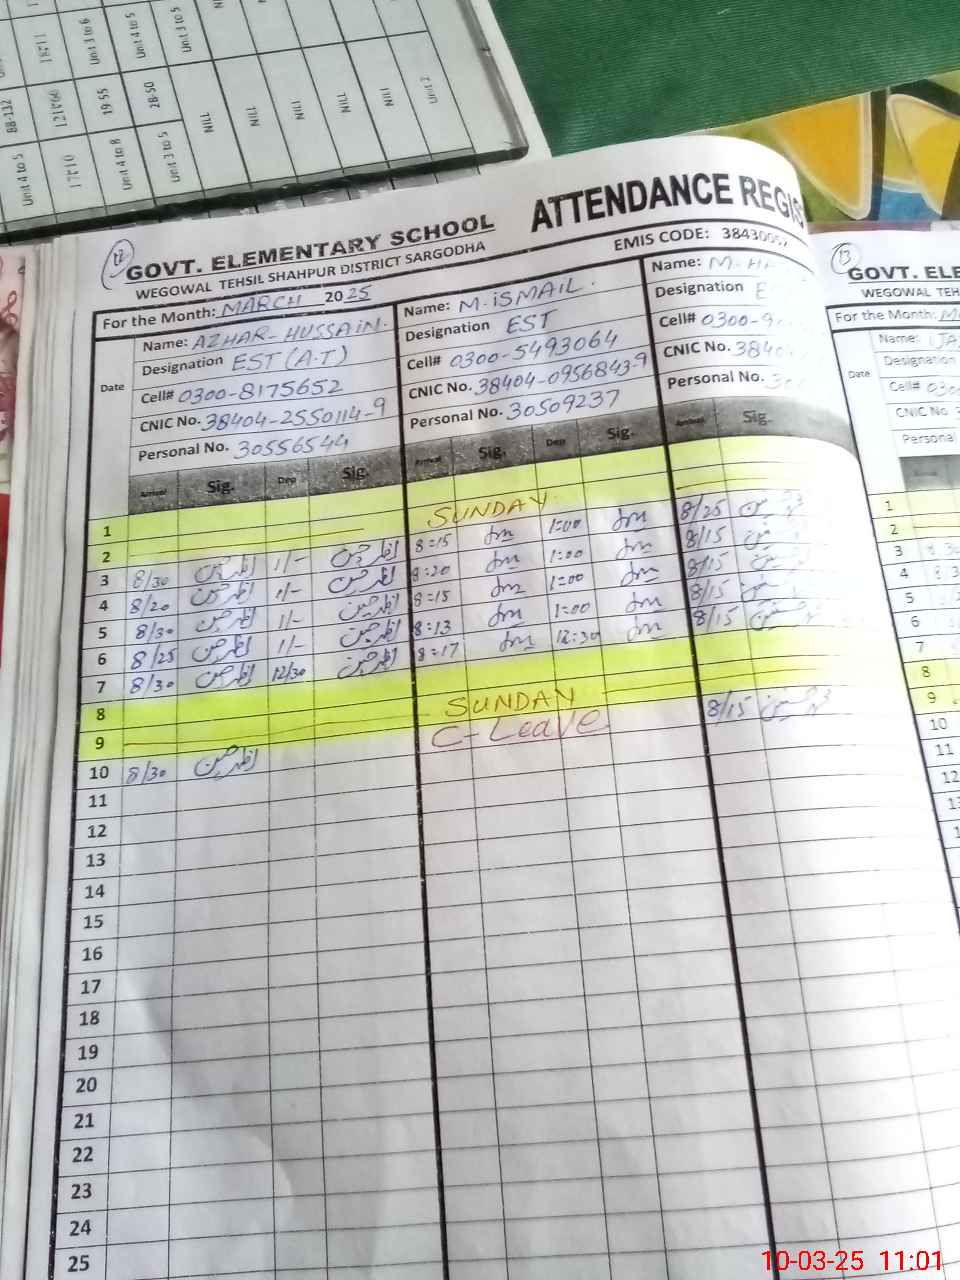 Unit 3 to 6
Unit 4 to 5
Unit 3 to 5
88-132
19-55
28-50
Unit 4 to 5
17#10
Unit 4 to 8
Unit 3 to 5
NILL
NILL
NILL
NILL
NILL
Unit 2
12
GOVT. ELEMENTARY SCHOOL ATTENDANCE
WEGOWAL TEHSIL SHAHPUR DISTRICT SARGODHA EMIS CODE:
For the Month: MARCH 2025
Date
Name: AZHAR-HUSSAIN.
Designation EST (A.T)
Cell# 0300-8175652
CNIC No. 38404-2550114-9
Personal No. 30556544
Arrival Sig. Dep Sig.
Name: M. ISMAIL.
Designation EST
Cell# 0300-5493064
CNIC No. 38404-0956843-9
Personal No. 30509237
Arrival Sig. Dep Sig.
Name:
Designation
Cell#
CNIC No.
Personal No.
Arrival Sig.
1 SUNDAY
2
3 8/30 اظہر حسین 1/- اظہر حسین 8=15 1=00 8/25
4 8/20 اظہر حسین 1/- اظہر حسین 8=20 1=00 8/15
5 8/30 اظہر حسین 1/- اظہر حسین 8=15 1=00 8/15
6 8/25 اظہر حسین 1/- اظہر حسین 8=13 1=00 8/15
7 8/30 اظہر حسین 12/30 اظہر حسین 8=17 12=30 8/15
8
9 SUNDAY
10 8/30 اظہر حسین C-Leave 8/15
11
12
13
14
15
16
17
18
19
20
21
22
23
24
25
13
WEGOWAL
For the Month:
Date
Name:
Designation
Cell#
CNIC No.
Personal
1
2
3
4
5
6
7
8
9
10
11
12
10-03-25 11:01